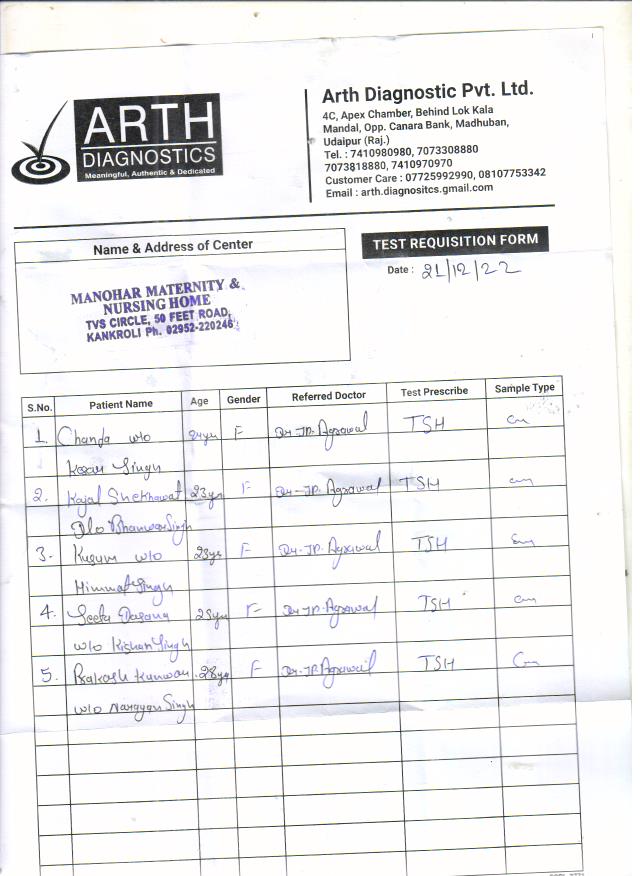 ARTH
DIAGNOSTICS
Meaningful, Authentic & Dedicated
Arth Diagnostic Pvt. Ltd.
4C, Apex Chamber, Behind Lok Kala
Mandal, Opp. Canara Bank, Madhuban,
Udaipur (Raj.)
Tel. : 7410980980, 7073308880
7073818880, 7410970970
Customer Care : 07725992990, 08107753342
Email : arth.diagnositcs.gmail.com
Name & Address of Center
MANOHAR MATERNITY &
NURSING HOME
TVS CIRCLE, 50 FEET ROAD,
KANKROLI Ph. 02952-220246
TEST REQUISITION FORM
Date : 21/12/22
S.No. Patient Name Age Gender Referred Doctor Test Prescribe Sample Type
1. Chanda w/o 24yr F Dr. J.P. Agrawal TSH
Kesar Singh
2. Kajal Shekhawat 23yr F Dr. J.P. Agrawal TSH
D/o Bhanwar Singh
3. Kusum w/o 23yr F Dr. J.P. Agrawal TSH
Himmat Singh
4. Seeta 25yr F Dr. J.P. Agrawal TSH
w/o Kishan Singh
5. Prakash Kunwar 28yr F Dr. J.P. Agrawal TSH
w/o Narayan Singh